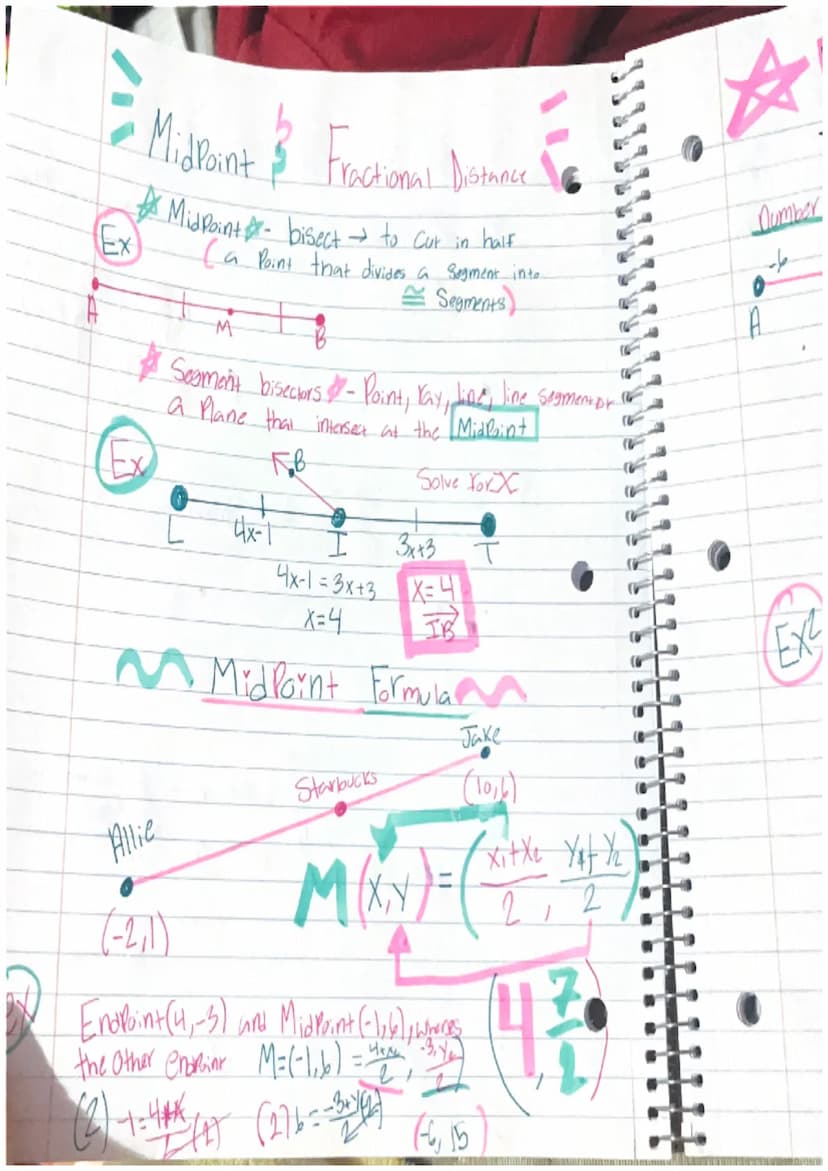 MidPoint & Fractional Distance
MidPoint - bisect → to cut in half
Ex
(a Point that divides a segment into
≅ Segments)
A
M
B
Segment bisectors - Point, ray, line, line segment or
a Plane that intersect at the MidPoint
Ex
B
Solve for X
L
4x-1
I
3x+3
T
4x-1 = 3x+3
x=4
X=4
IB
MidPoint Formula
Jake
Starbucks
(10,6)
Allie
(-2,1)
M(X,Y) = (X₁+X₂/2, Y₁+Y₂/2)
(4, 7/2)
Ex
EndPoint (4,-3) and MidPoint (-1,6), wheres
the other endpoint M=(-1,6) = 4+x₂/2, -3+Y₂/2
(2) -1 = 4+X/2 (2) (2) 6 = -3+Y/2 (2)
(-6, 15)
Number
-6
A
Ex²